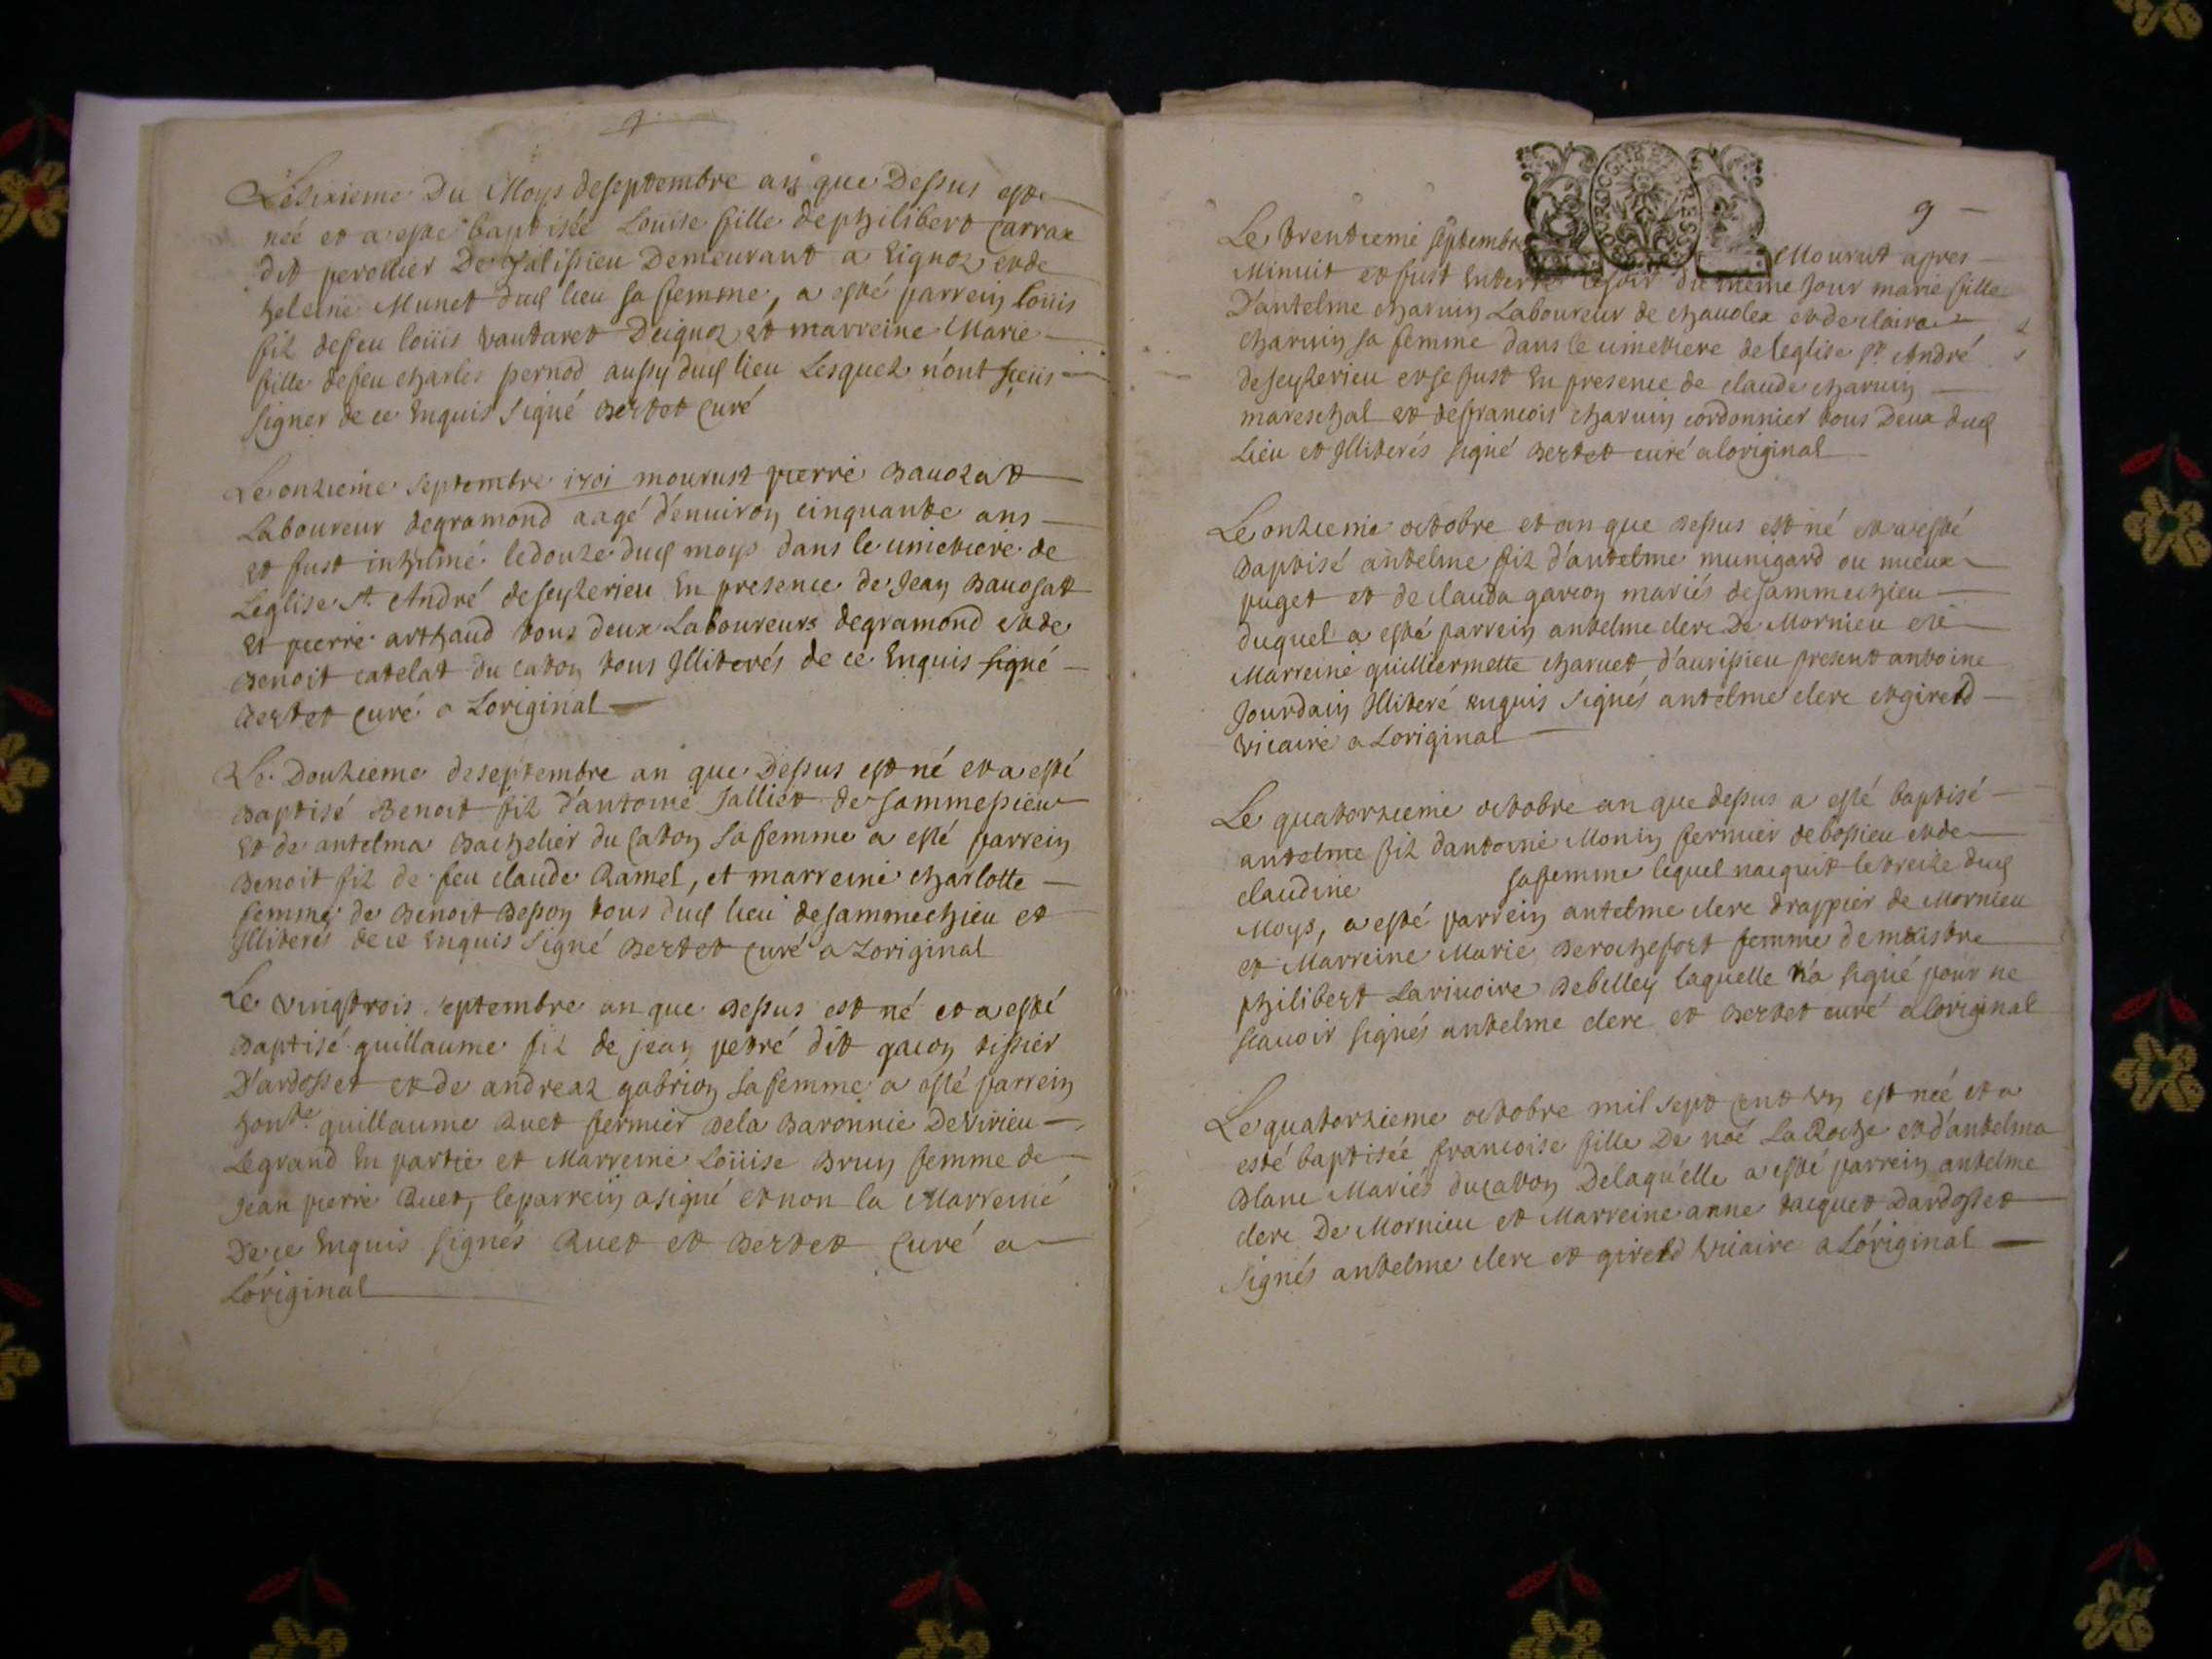 Le sixieme Du Moys de septembre an que Dessus este
neé et a esté baptisée Louise fille de philibert Carrax
dit perollier De Talissieu Demeurant a Lignoz et de
heleine Munet dud lieu sa femme, a esté parrein loüis
filz de feu loüis vautaret Deignoz et marreine Marie
fille de feu charles pernod aussy dud lieu Lesquelz n'ont sceüs
signer de ce Enquis signé Bertet Curé
Le onzieme septembre 1701 mourust pierre Bauozat
Laboureur de gramond aagé d'enuiron cinquante ans
et fust inhumé le douze dud moys dans le cimetiere de
Leglise St. André de seyzerieu En presence de Jean Bauosat
Et pierre arthaud tous deux Laboureurs de gramond et de
Benoit catelat du caton tous Illiterés de ce Enquis signé
Bertet Curé a Loriginal
Le Douzieme de septembre an que Dessus est né et a esté
Baptisé Benoit filz d'antoine Jalliet de sammessieu
Et de antelma Bachelier du Caton sa femme a esté parrein
Benoit filz de feu claude Ramel, et marreine charlotte
femme de Benoit Besson tous dud lieu de sammechieu et
Illiterés de ce Enquis signé Bertet Curé a Loriginal
Le vingtrois septembre an que Dessus est né et a esté
Baptisé guillaume filz de jean petré dit gacon tissier
D'ardosset et de andreaz gabrion sa femme a esté parrein
honte. guillaume Ruet fermier de la Baronnie De virieu
Le grand En partie et Marreine Loüise Brun femme de
Jean pierre Ruet, le parrein a signé et non la Marreine
De ce Enquis signés Ruet et Bertet Curé a
Loriginal
9
Le trentieme septembre Mourut apres
Minuit et fust Enterré le soir du meme Jour marie fille
D'antelme charuin Laboureur de chaudex et de claira
charuin sa femme dans le cimetiere de leglise St André
de seyzerieu et ce fust En presence de claude charuin
mareschal et de francois charuin cordonnier tous Deux dud
Lieu et Illiterés signé Bertet curé a loriginal
Le onzieme octobre et an que Dessus est né et a esté
Baptisé antelme filz d'antelme munigard ou mieux
puget et de clauda garcon mariés de sammechieu
duquel a esté parrein antelme clerc De Mornieu et
Marreine guilliermette charuet d'aurissieu present antoine
Jourdain Illiteré enquis signés antelme clerc et girerd
vicaire a Loriginal
Le quatorzieme octobre an que dessus a esté baptisé
antelme filz d'antoine Monin fermier de bossieu et de
claudine sa femme lequel nacquit le treize dud
Moys, a esté parrein antelme clerc drappier de Mornieu
et Marreine Marie Derochefort femme de maistre
philibert Larivoire Debelley laquelle n'a signé pour ne
scauoir signés antelme clerc et Bertet curé a loriginal
Le quatorzieme octobre mil sept Cent vn est neé et a
esté baptisée francoise fille De noé La Roche et d'antelma
Blanc Mariés du Caton De laquelle a esté parrein antelme
clerc De Mornieu et Marreine anne Jacquet Dardosset
signés antelme clerc et girerd vicaire a Loriginal